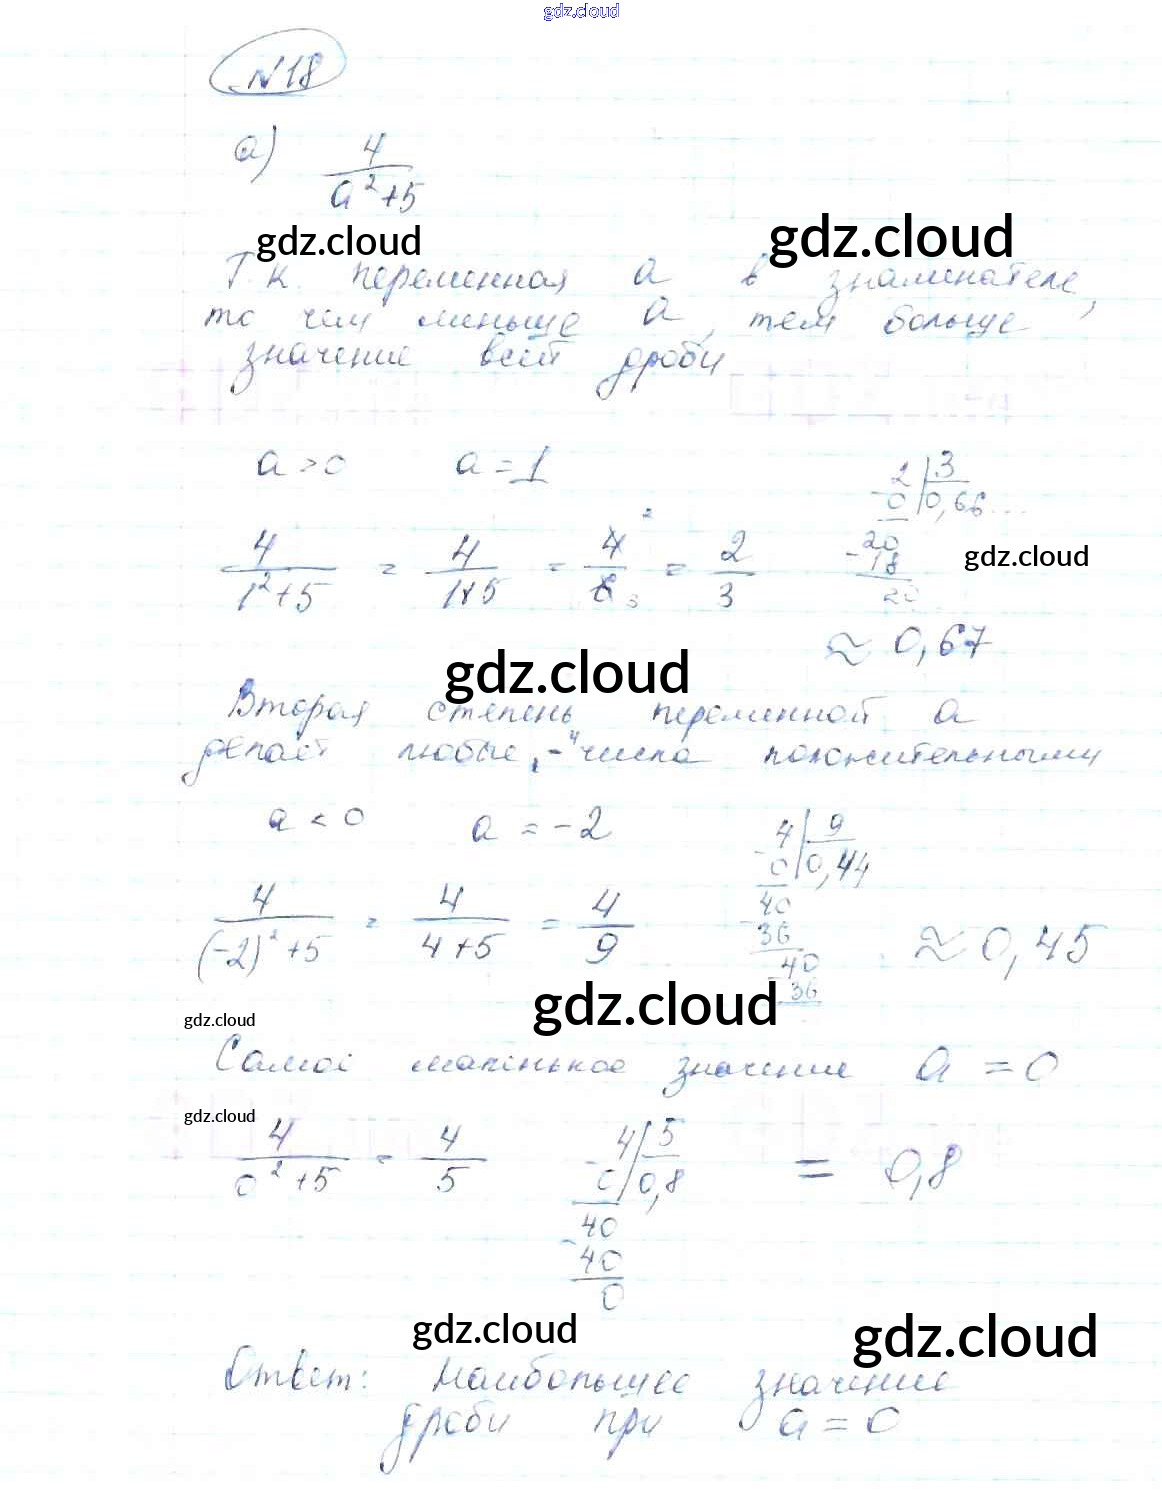 gdz.cloud
№18
а) 4/(a²+5)
gdz.cloud gdz.cloud
Т.к. переменная a в знаменателе,
то чем меньше a, тем больше
значение всей дроби
a > 0 a = 1
2 | 3
0 | 0,66...
4/(1²+5) = 4/(1+5) = 4/6 = 2/3
20
- 18
20
gdz.cloud
≈ 0,67
gdz.cloud
Вторая степень переменной a
делает любые „-“ числа положительными
a < 0 a = -2
4 | 9
- 0 | 0,44
4/((-2)²+5) = 4/(4+5) = 4/9
40
- 36
40
- 36
≈ 0,45
gdz.cloud gdz.cloud
Самое маленькое значение a = 0
gdz.cloud
4/(0²+5) = 4/5
4 | 5
- 0 | 0,8
40
- 40
0
= 0,8
gdz.cloud gdz.cloud
Ответ: наибольшее значение
дроби при a = 0